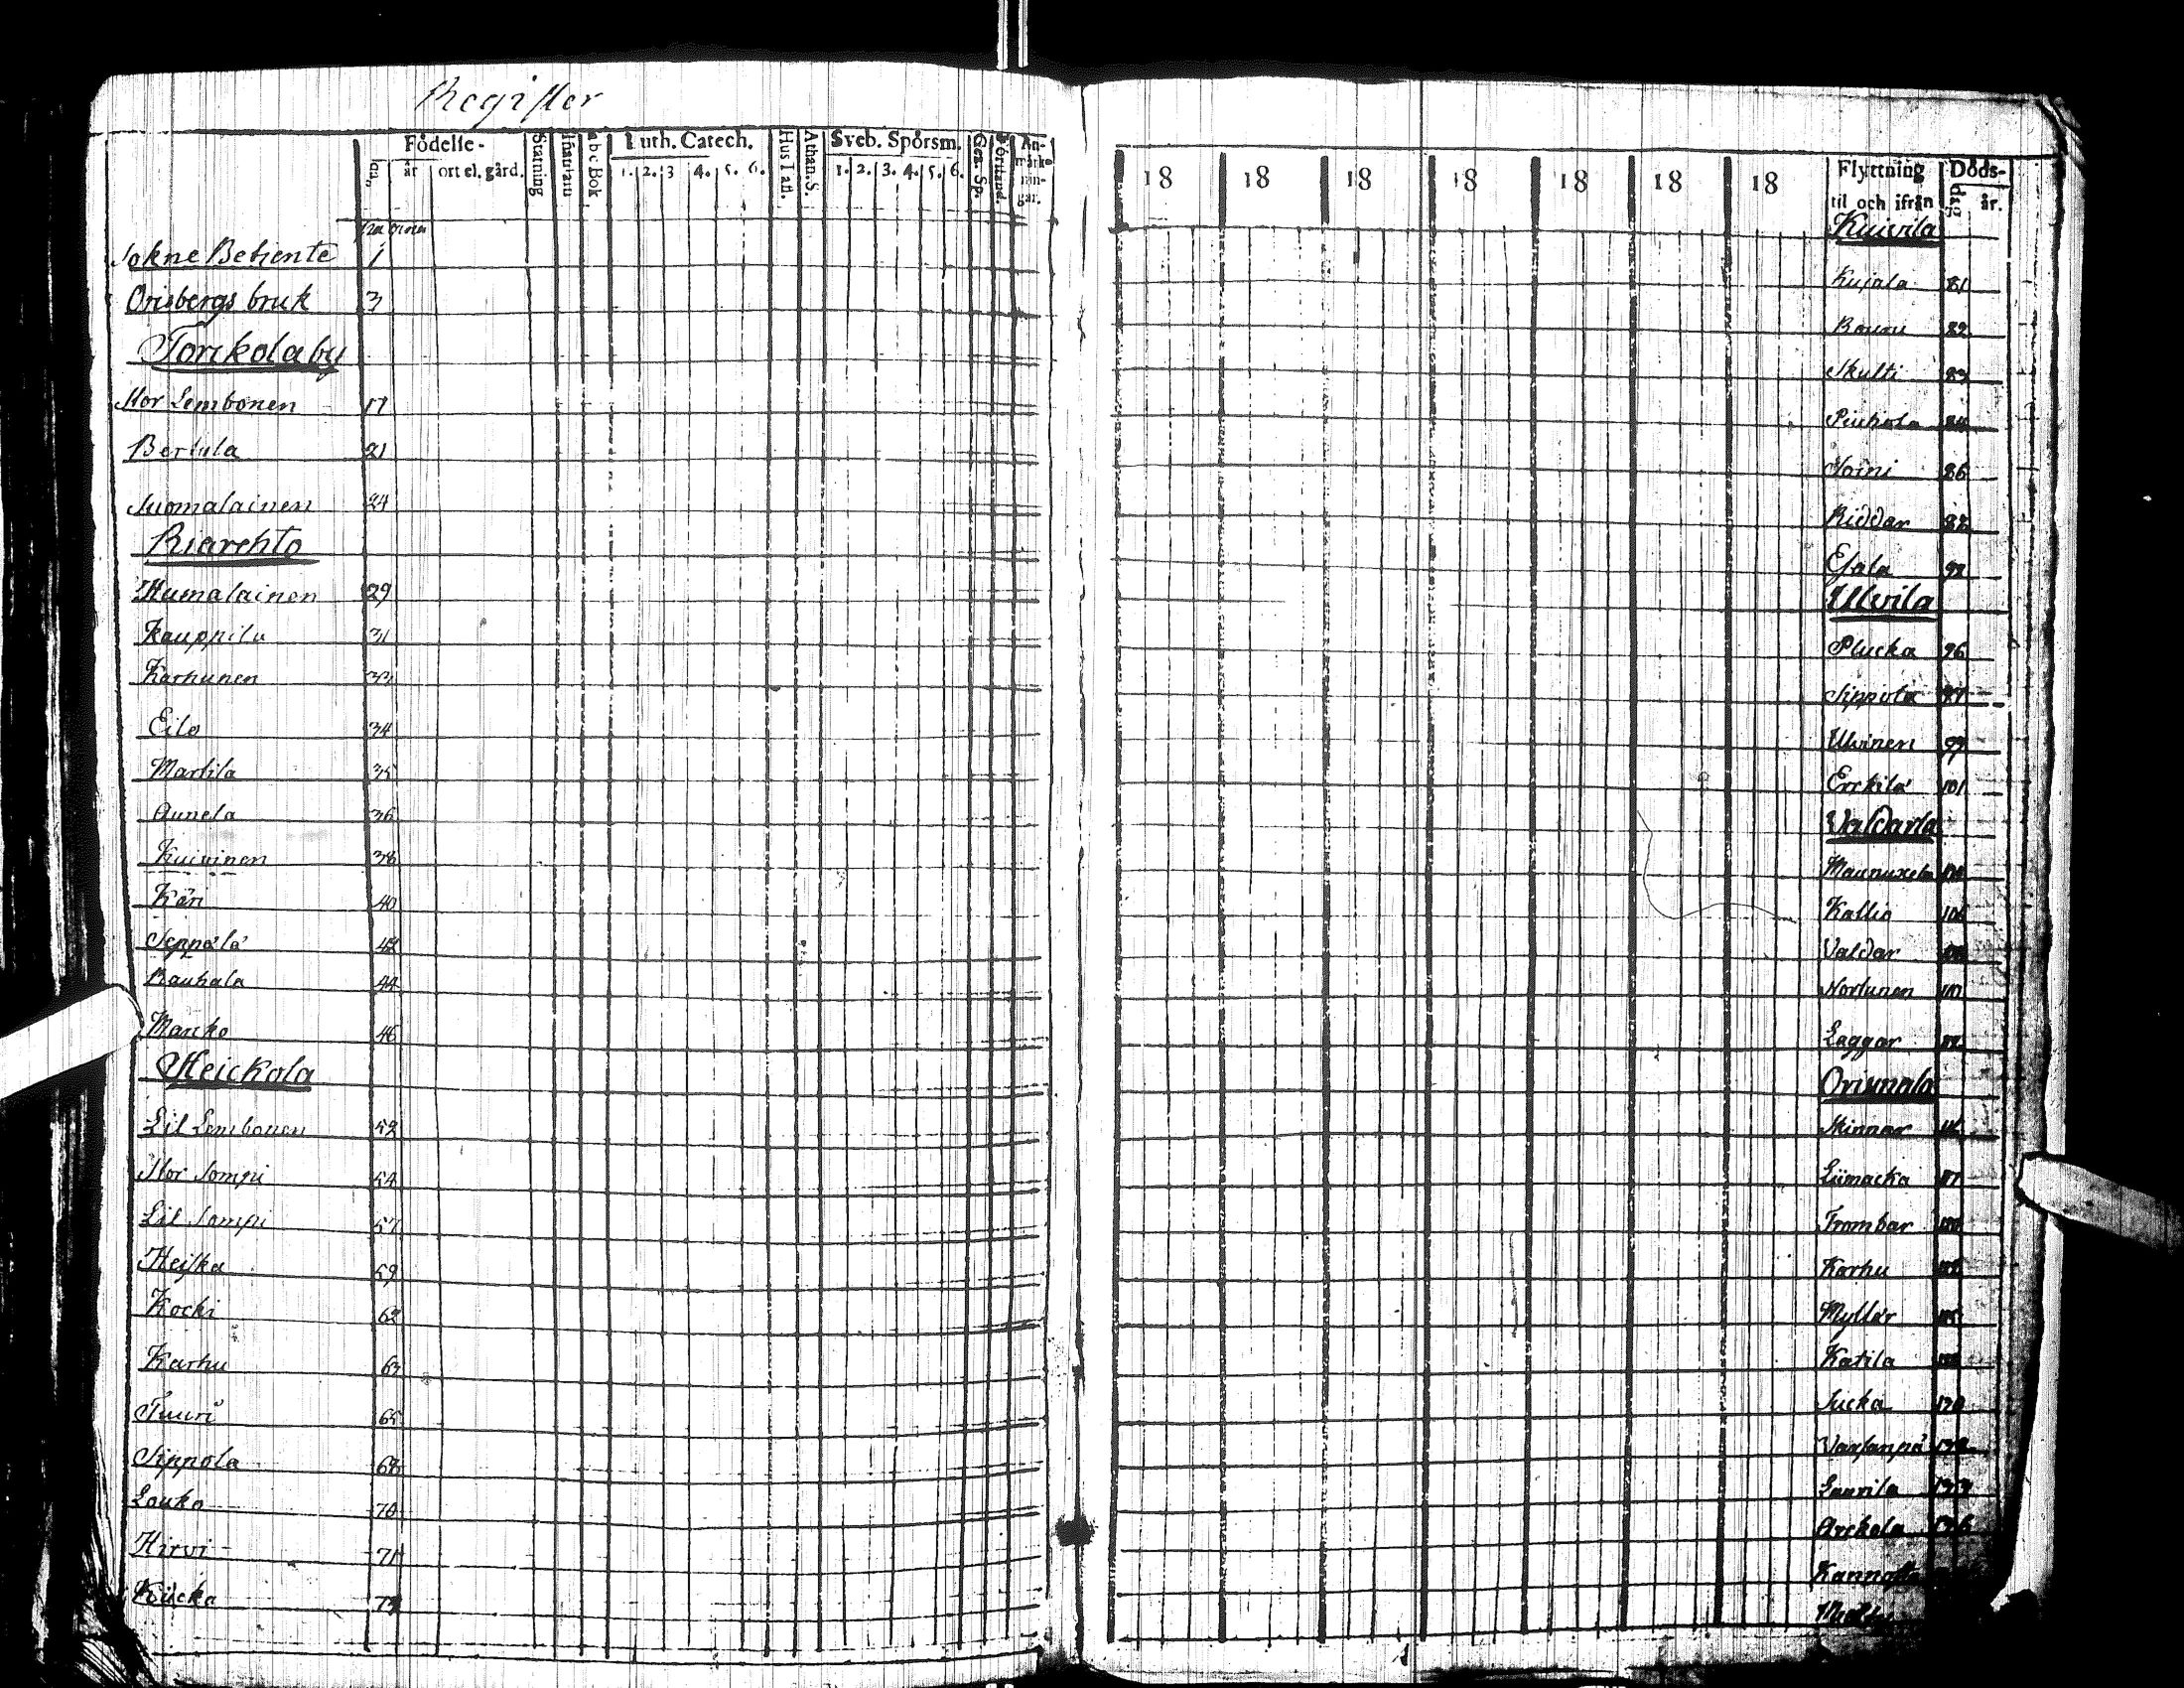 Register
Födelse-
Stafning
Abc Bok
Luth. Catech.
Hustafl.
Athan. S.
Sveb. Spörsm.
Gez. Sp.
Förstånd.
An-
märk-
nin-
gar.
år
ort el. gård.
1. 2. 3 4. 5. 6.
1. 2. 3. 4. 5. 6.
Sokne Betiente 1
Orisbergs bruk 3
Torikola by
Stor Lembonen 17
Bertula 21
Suomalainen 24
Riarehto
Humalainen 29
Kauppila 31
Karhunen 33
Eilo 34
Martila 35
Aunela 36
Kuivinen 38
Käri 40
Seppälä 42
Rauhala 44
Mancko 46
Heickola
Lil Lembonen 52
Stor Sompi 54
Lil Sompi 57
Heiska 59
Kocki 62
Karhu 63
Tuuri 65
Sippola 68
Louko 70
Hirvi 71
Kiicka 73
18 18 18 18 18 18 18
Flyttning
til och ifrån
Döds-
dag
år.
Kuivila
Kujala 81
Rouru 82
Skulti 83
Piuhola 84
Joini 86
Riddar 88
Esala 92
Ulvila
Plucka 96
Sippola 97
Ulvinen 99
Erckilä 101
Valdarla
Maunuxela
Kallio 106
Valdar
Nortunen
Laggar
Orismala
Skinnar
Liimacka
Trombar
Karhu
Myllär
Katila
Jucka
Vaxsanpä
Laurila
Arckola